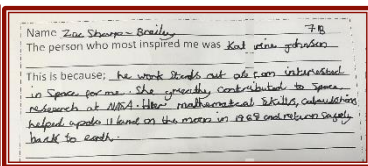 Name Zac Sharpe-Brailey 7B
The person who most inspired me was Katherine Johnson
This is because; he work Stands out as I am interested
in Space for me. She greatly contributed to Space
research at NASA. Her mathematical skills, calculations
helped apollo 11 land on the moon in 1969 and return safely
back to earth.